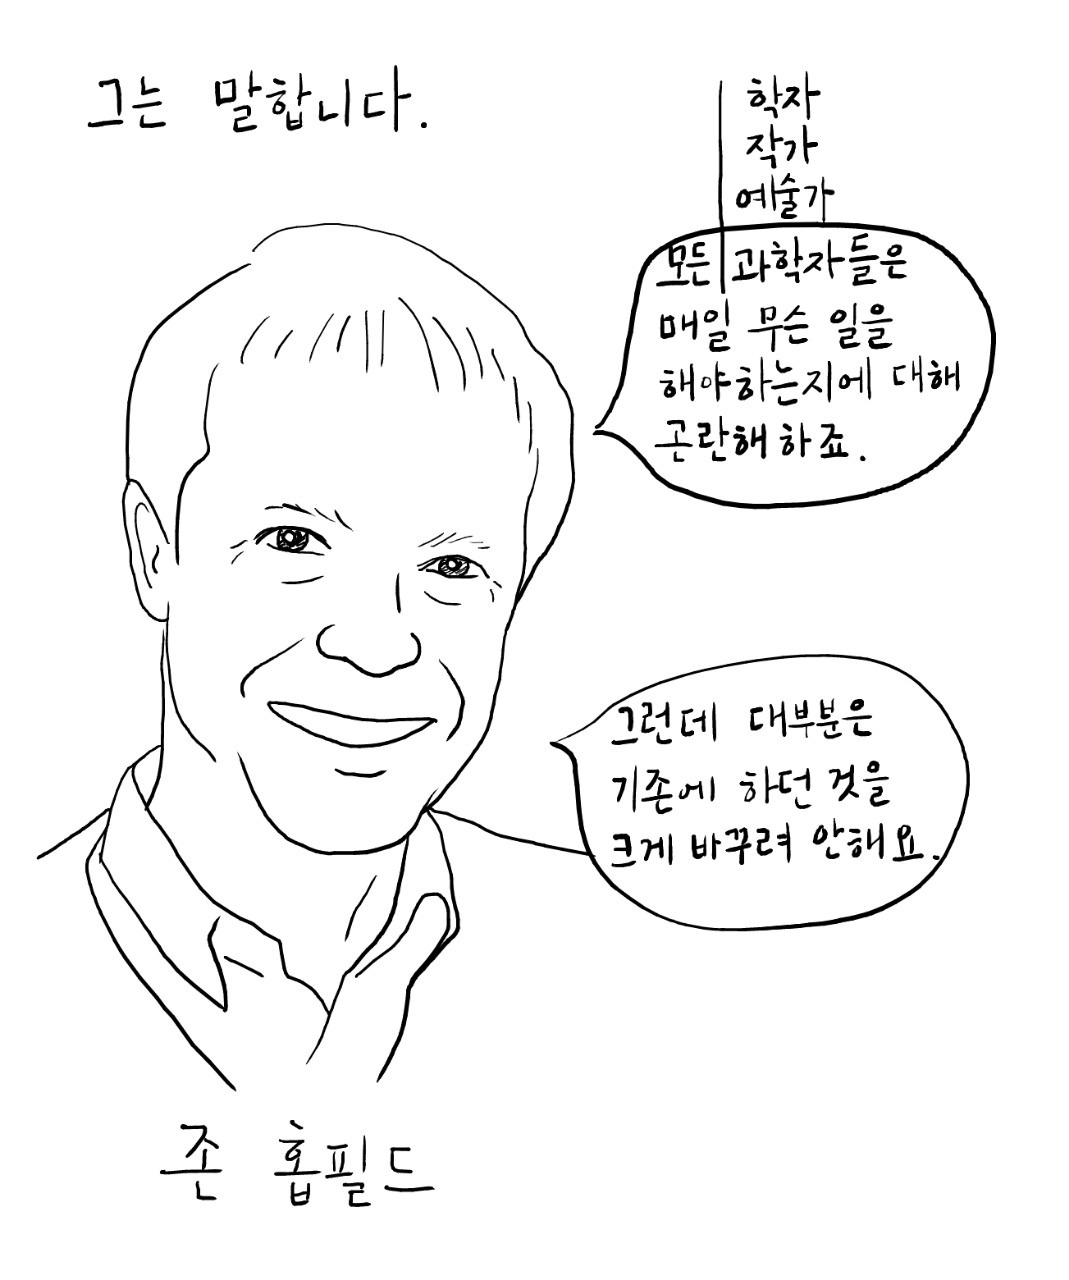 그는 말합니다.
학자
작가
예술가
모든 과학자들은
매일 무슨 일을
해야하는지에 대해
곤란해 하죠.
그런데 대부분은
기존에 하던 것을
크게 바꾸려 안해요.
존 홉필드